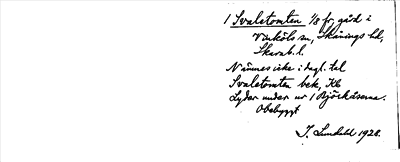 1 Svaletomten 1/8 fr, gård i
Vinköls sn, Skånings hd,
Skarab. l.
Nämnes icke i dagl. tal
Svaletomten bek, Kb
Lyder under nr 1 Björkåserna.
Obebyggt
J. Lundahl 1928.